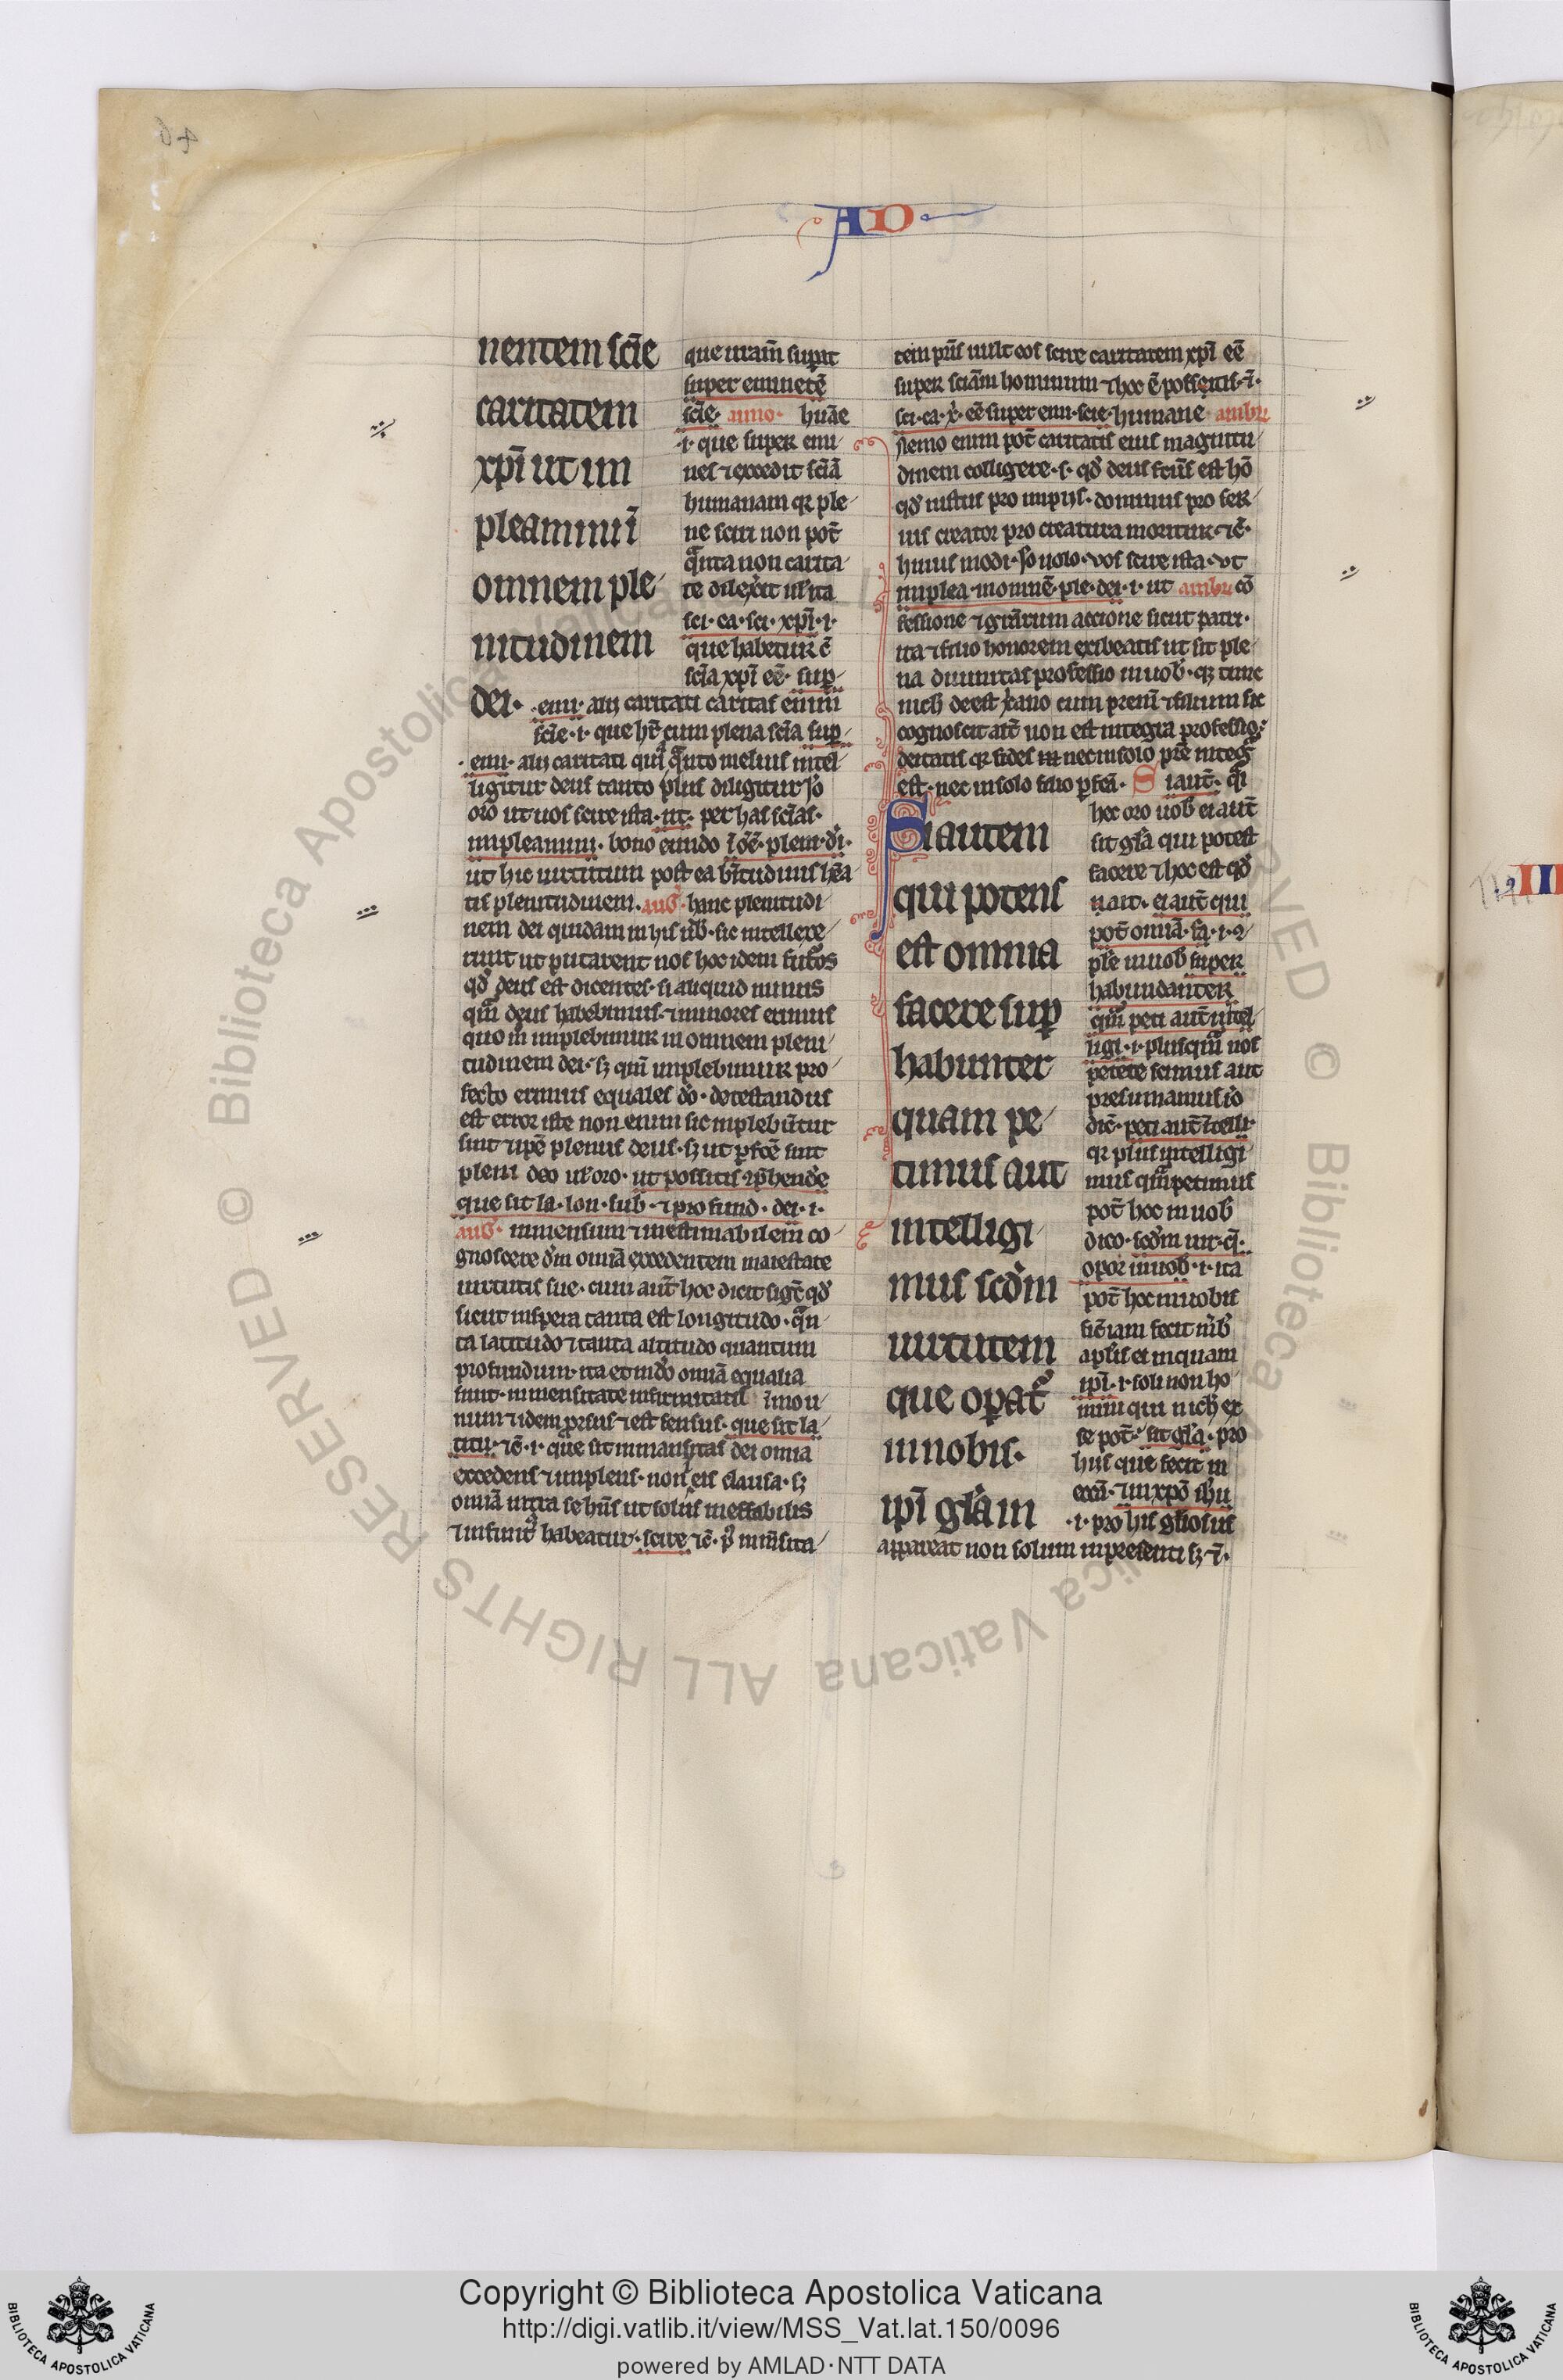 AD
nentem scīe
caritatem
xp̄i ut im
pleamini ī
omnem ple
nitudinem
dei·
que utrām supat
super eminetē
scīe· anno· huāe
·i· que super emi
net ⁊ excedit sciā
humanam qr ple
ne sciri non pot̄
q̄nta non carita
te dilexit ul' ita
sci· ca· sci· xp̄i· i·
que habetur c̄
scīa xp̄i eē· sup̄
·emi· alij caritati caritas emīn
scīe· i· que hēt cum plena scīa sup̄
·emi· alij caritati quā q̄nto melius intel
ligitur deus tanto plus diligitur
oro ut uos scire ista· ut· per has scīas·
impleamini· bono eundo ī oēm· pleni· di·
ut hic uirtutum post ea b̄titudinis hēa
tis plenitudinem. aug· hanc plenitudi
nem dei quidam in his ub̄· sic intellexe
runt ut putarent nos hoc idem futuros
qd̄ deus est dicentes· si aliquid minus
qm̄ deus habebimus· ⁊ minores erimus
quo m̄ implebimur in omnem pleni
tudinem dei· sꝫ qm̄ implebimur pro
fecto erimus equales do· detestandus
est error iste non enim sic implebūtur
sint ⁊ ip̄e plenus deus· sꝫ ut p̄fcē sint
pleni deo ul' oro· ut possitis 9p̄hendē
que sit la· lon· sub· ⁊ profund· dei· i·
aug· inmensum ⁊ inestimabilem co
gnoscere dm̄ omīa excedentem maiestate
uirtutis sue· cum aut̄ hoc dicit sigt̄ qd̄
sicut in spera tanta est longitudo· q̄n
ta latitudo ⁊ tanta altitudo quantum
profundum· ita et in do omīa equalia
sunt· inmensitate infirmitatis
num ⁊ idem prsus ⁊ est sensus· que sit la
titu· ⁊c̄· i· que sit inmansitas dei omīa
excedens ⁊ implens· non eis clausa· sꝫ
omīa intra se hn̄s ut solus ineffabilis
⁊ infinit' habeatur· scire ⁊c̄· p' inm̄sita
tem prīs uult eos scire caritatem xp̄i eē
super sciām hominum ⁊ hoc ē possitis· ⁊·
sci· ca· x̄· eē super emi· scie· humane ambr
Nemo enim pot̄ caritatis eius magnitu
dinem colligere· s· qd̄ deus fctūs est hō
qd̄ iustus pro impijs· dominus pro ser
uis creator pro creatura moritur· ⁊c̄·
huius modi· ſo uolo· uos scire ista· ut
implea· in omnē· ple· dei· i· ut ambr cō
fessione ⁊ gratirum accione sicut patri·
ita ⁊ filio honorem exibeatis ut sit ple
na diuinitas professio in uob̄· qꝫ tunc
nich̄ deest xano cum prem̄ ⁊ filium sic
cognoscit alr̄ non est integra professio
deitatis qr fides nec in solo prē inteḡ
est· nec in solo filio p̄fca· Si aut̄· q̄
Si autem
qui potens
est omnia
facere sup
habunter
quam pe
timus aut
intelligi
mus scd̄m
uirtutem
que opat'
in nobis·
ip̄i gl'a in
hec oro uob̄ ei aut̄
sit gl'a qui potest
facere ⁊ hoc est qd̄
n ait· ei aut̄ qui
pot̄ omīa· fa· i· 9
ple in uob̄ super
habundanter
qm̄ peti aut̄ intel
ligi· i· plusqm̄ nos
petere scimus aut
presumamus io
dic̄· peti aut̄ ītelli
qr plus intelligi
mus qm̄ petimus
pot̄ hoc in uob̄
dico· scd̄m uir· q̄·
opor in uob̄· i· ita
pot̄ hoc in uobis
sic̄ iam fecit in b̄
aplīs et in quam
ip̄i· i· soli non ho
mini qui nich̄ ex
se pot̄· sit gl'a· pro
hiis que fecit in
eccā· ⁊ in xp̄o ihu
·i· pro his gl'iosus
appareat non solum in presenti sꝫ ⁊·
Copyright © Biblioteca Apostolica Vaticana
http://digi.vatlib.it/view/MSS_Vat.lat.150/0096
powered by AMLAD·NTT DATA
BIBLIOTECA APOSTOLICA VATICANA
BIBLIOTECA APOSTOLICA VATICANA